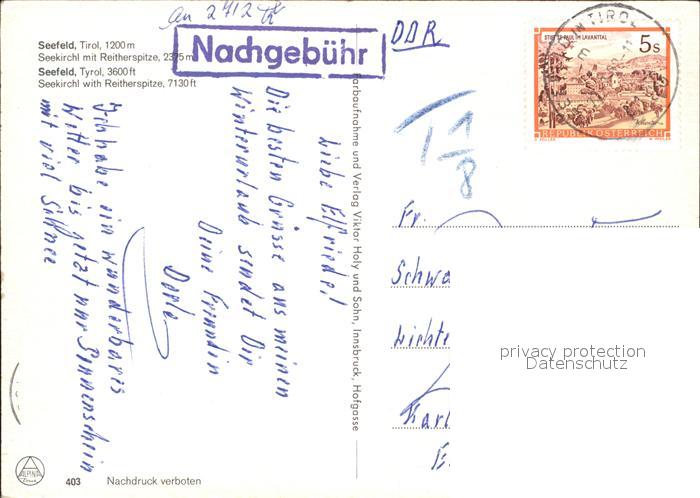 an 2712
Nachgebühr
DDR
Seefeld, Tirol, 1200 m
Seekirchl mit Reitherspitze, 2375 m
Seefeld, Tyrol, 3600 ft
Seekirchl with Reitherspitze, 7130 ft
Liebe Elfriede!
Die besten Grüsse aus meinen
Winterurlaub sendet Dir
Deine Freundin
Dorle
Ich habe ein wunderbares
Wetter bis jetzt nur Sonnenschein
mit viel Schnee
Farbaufnahme und Verlag Viktor Holy und Sohn, Innsbruck, Hofgasse
STIFT ST. PAUL IM LAVANTTAL
5 S
REPUBLIK ÖSTERREICH
T 1/8
Fr.
Schwa
Lichte
Karl
privacy protection
Datenschutz
ALPINA
Druck
403 Nachdruck verboten